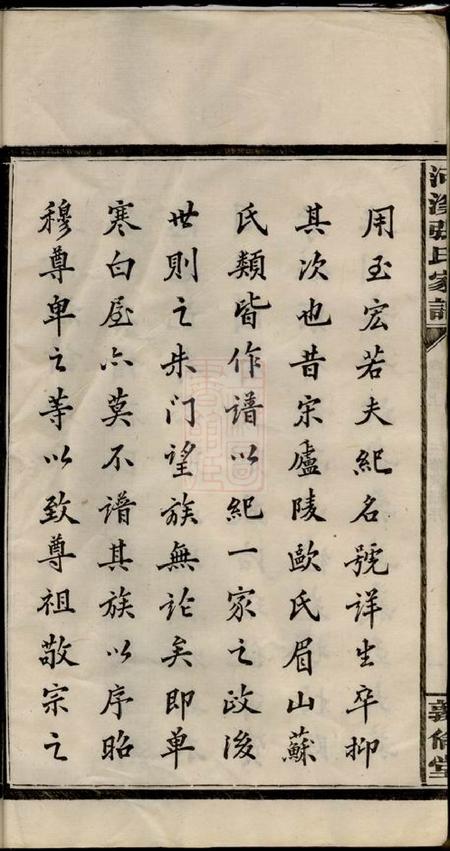 用玉宏若夫紀名號詳生卒抑
其次也昔宋廬陵歐氏眉山蘇
氏類皆作譜以紀一家之政後
世則之朱门望族無论矣即单
寒白屋亦莫不谱其族以序昭
穆尊卑之等以致尊祖敬宗之
張氏家譜
義倫堂